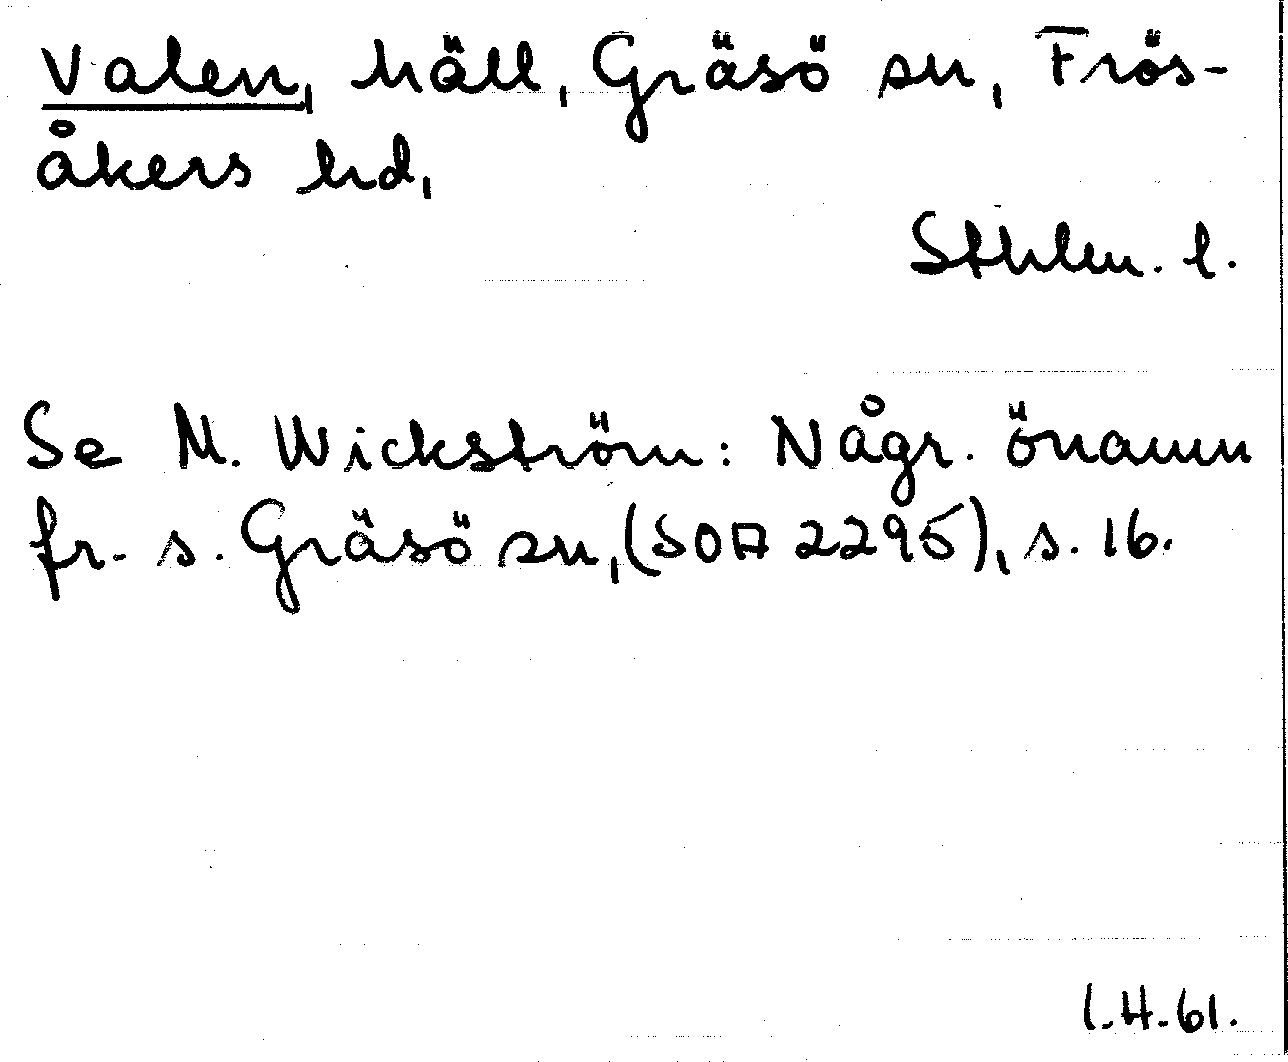 Valen, häll, Gräsö sn, Frös-
åkers hd,
Sthlm. l.
Se M. Wickström: Någr. önamn
fr. s. Gräsö sn, (SOA 2295), s. 16.
1.4.61.